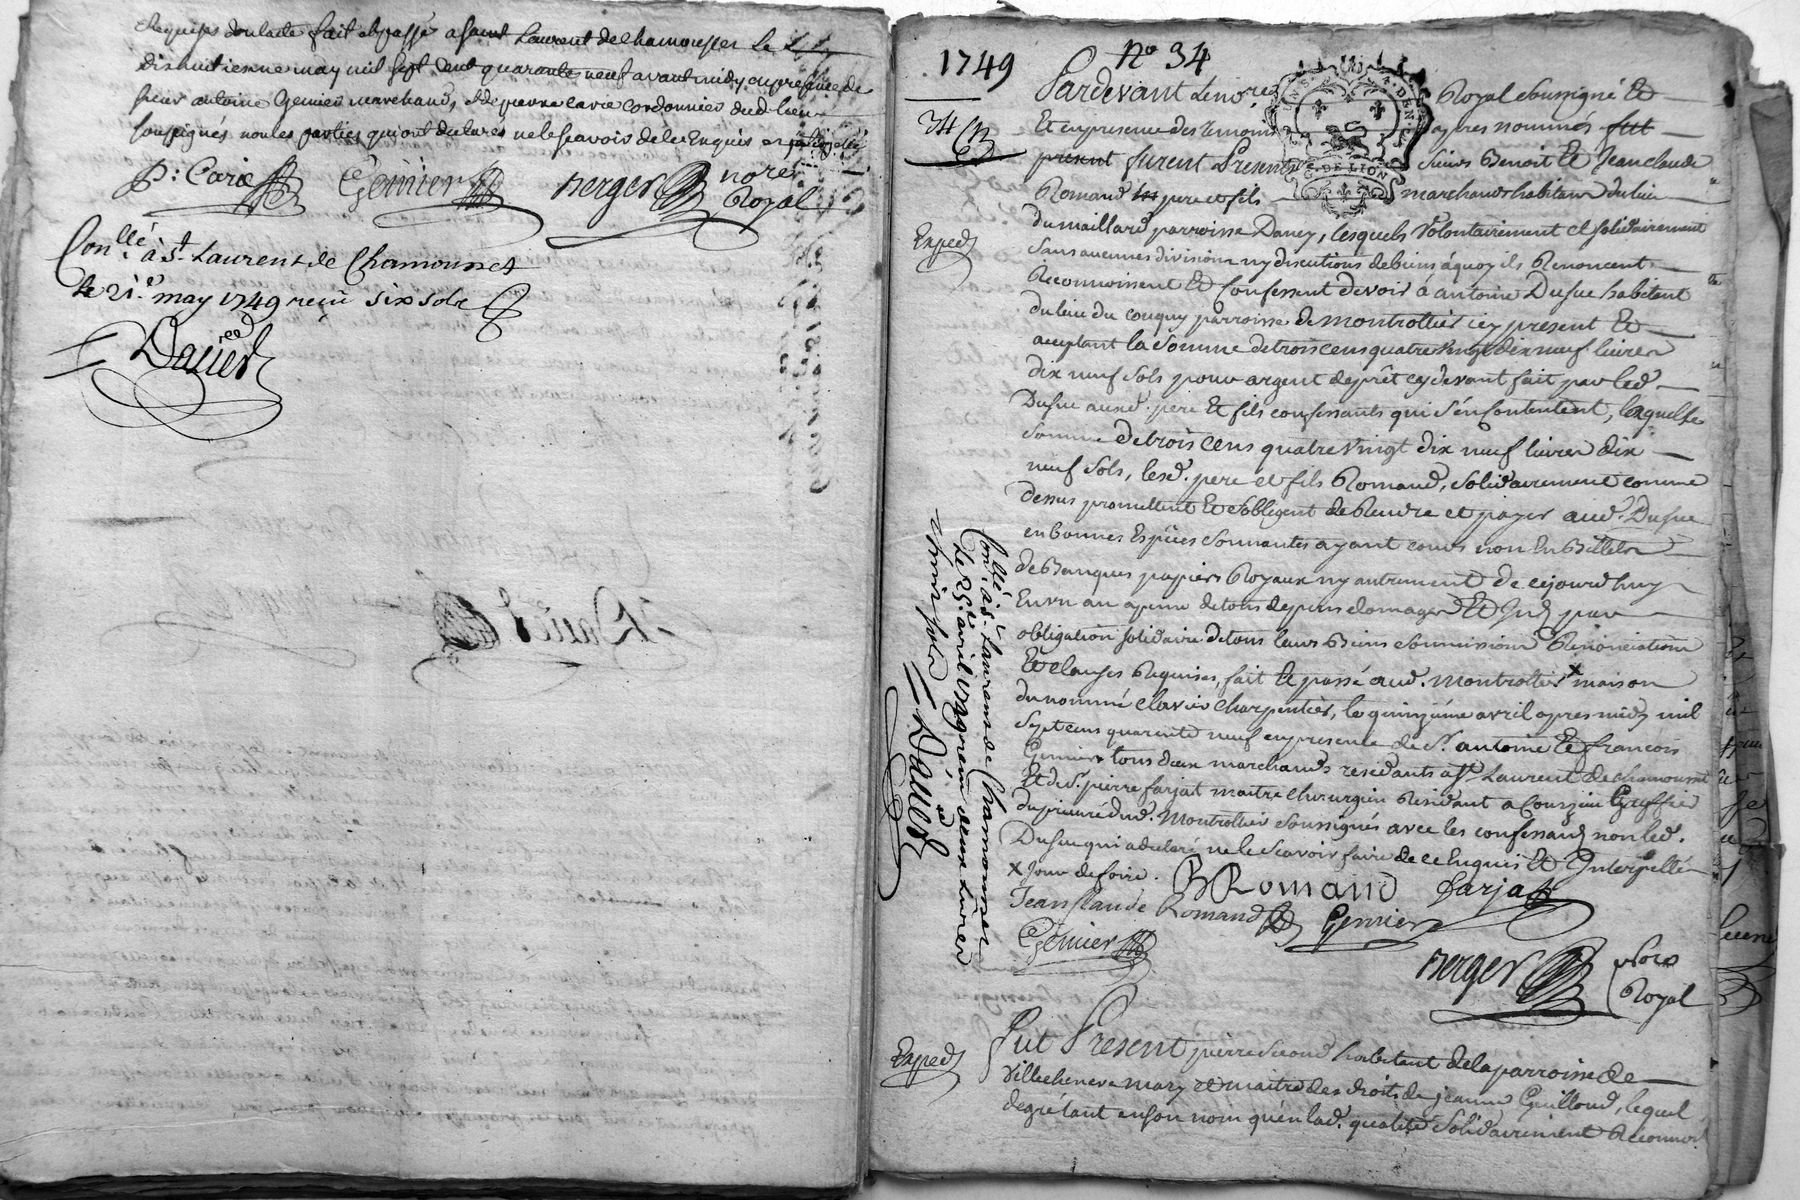 Requises dont acte fait et passé a saint Laurent de chamousset Le
dix huitieme may mil sept cent quarante neuf avant midy en presence de
sieur antoine Genier marchand, et de pierre carie cordonnier dud. lieu
soussignés non les parties qui ont declaré ne le scavoir de ce Enquis
P: Carie Genier Berger nore
Royal
Conllé à St. Laurent de Chamousset
le 21e. may 1749 reçu six sols
Davier
1749
34
Exped
No 34
Pardevant Le nore Royal soussigné Et
Et en presence des temoins apres nommés fut
present furent Presents sieurs Benoit Et Jean claude
Romand pere et fils marchands habitans du lieu
du maillard parroisse Dancy, lesquels Volontairement et solidairement
sans aucunes division ny discutions de biens à quoy ils Renoncent
Reconnoissent Et Confessent devoir à antoine Dufue habitant
du lieu du couguy parroisse de montrottier icy present Et
acceptant la somme de trois cens quatre Vingt dix neuf livres
dix neuf sols pour argent de prêt cy devant fait par led.
Dufue auxd. pere Et fils confessants qui s'en contentent, laquelle
somme de trois cens quatre Vingt dix neuf livres dix
neuf sols, lesd. pere et fils Romand, solidairement comme
dessus promettent Et s'obligent de Rendre et payer aud. Dufue
en bonnes Espèces sonnantes ayant cours non En Billets
de Banques papiers Royaux ny autrement de ce jourd'huy
En un an a peine de tous depens domages Et
obligation solidaire de tous leurs Biens soumissions Renonciations
Et clauses Requises, fait Et passé aud. Montrottier x maison
du nommé clavier charpentier, le quinzième avril apres midy mil
sept cens quarente neuf en presence de Sr. antoine Et francois
Genier tous deux marchands residants a St. Laurent de chamousset
Et de Sr. pierre farjat maitre chirurgien Residant a Courzieu Greffier
du prieuré dud. Montrottier soussignés avec les confessans non led.
Dufue qui a declaré ne le Scavoir faire de ce Enquis Et Interpellé
x Jour de foire. B Romand farjat
Jean Claude Romand Genier
Genier
Berger nore
Royal
Conllé à St. Laurens de Chamousset
le 25e. avril 1749 reçu deux livres
Davier
Exped
Fut Present pierre Second habitant de la parroisse de
Villecheneve mary Et maitre des droits de jeanne Guilloud, lequel
degré tant en son nom qu'en lad. qualité Solidairement Reconnoit
G. DE LION